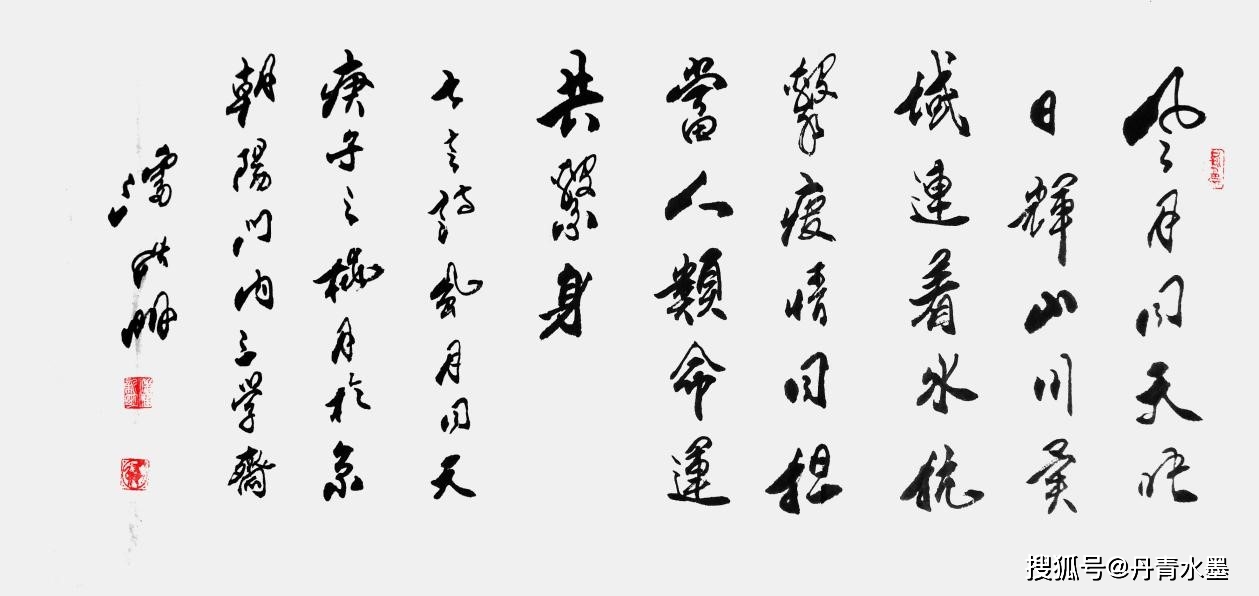 風月同天晤
日輝山川異
域連着水抗
擊疫情同担
當人類命運
共繫身
七言詩風月同天
庚子之槐月於京
朝陽門内學齋
搜狐号@丹青水墨